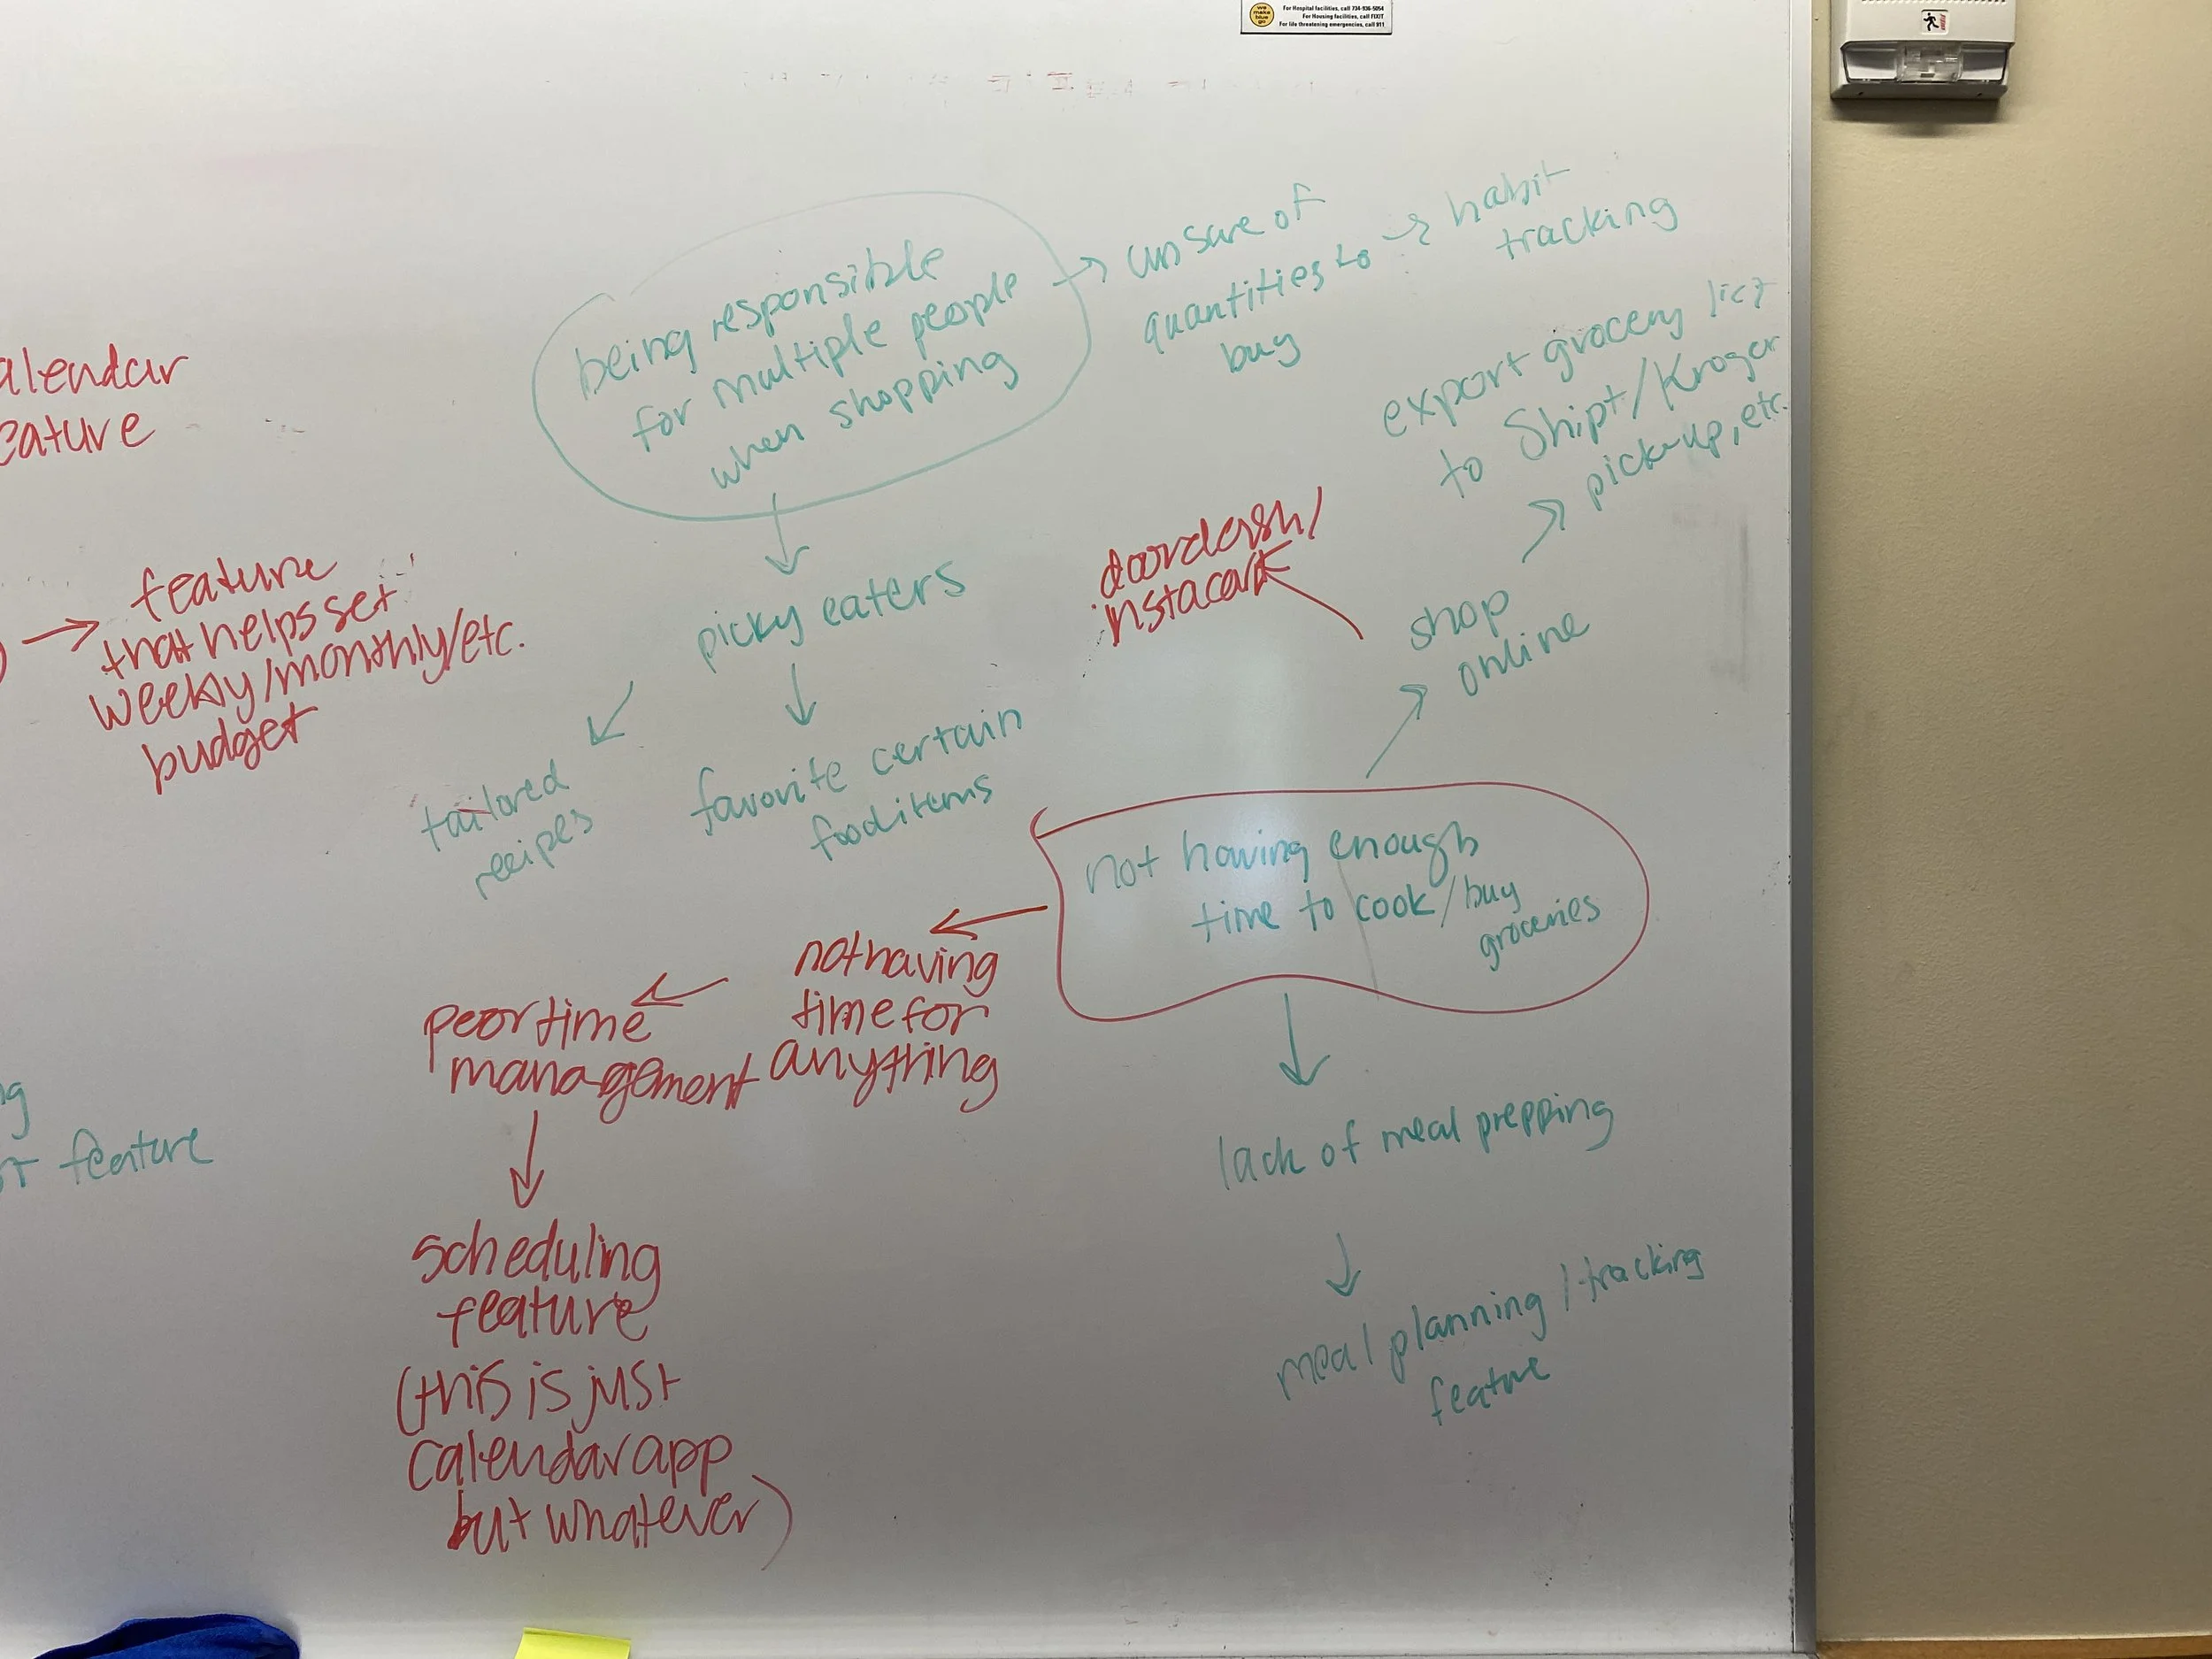 we make blue go
For Hospital facilities, call 734-936-5054
For Housing facilities, call FIXIT
For life threatening emergencies, call 911
alendar
eature
being responsible
for multiple people
when shopping
→ unsure of
quantities to
buy
→ habit
tracking
export grocery list
to Shipt/Kroger
pickup, etc.
doordash/
instacart
shop
online
→ feature
that helps set
weekly/monthly/etc.
budget
picky eaters
tailored
recipes
favorite certain
food items
not having enough
time to cook/buy
groceries
not having
time for
anything
poor time
management
lack of meal prepping
meal planning/tracking
feature
ng
feature
scheduling
feature
(this is just
calendar app
but whatever)